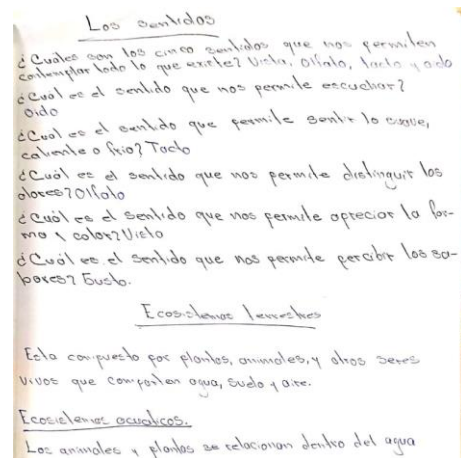 Los sentidos
¿Cuáles son los cinco sentidos que nos permiten
contemplar todo lo que existe? Vista, Olfato, tacto y oido
¿Cuál es el sentido que nos permite escuchar?
Oído
¿Cuál es el sentido que permite sentir lo suave,
caliente o frio? Tacto
¿Cuál es el sentido que nos permite distinguir los
olores? Olfato
¿Cuál es el sentido que nos permite apreciar la for-
ma y color? Vista
¿Cuál es el sentido que nos permite percibir los sa-
bores? Gusto.
Ecosistemas terrestres
Esta compuesto por plantas, animales, y otros seres
vivos que comparten agua, suelo y aire.
Ecosistemas acuaticos.
Los animales y plantas se relacionan dentro del agua